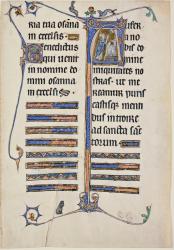 ria tua osanna
in excelsis.
Benedictus
qui uenit
in nomine do
mini osanna
in excelsis.
Aufer
a no
bis do
mine
iniquitates no
stras. ut me
reamur puris
casti menti
bus introire
ad sancta sanc
torum.